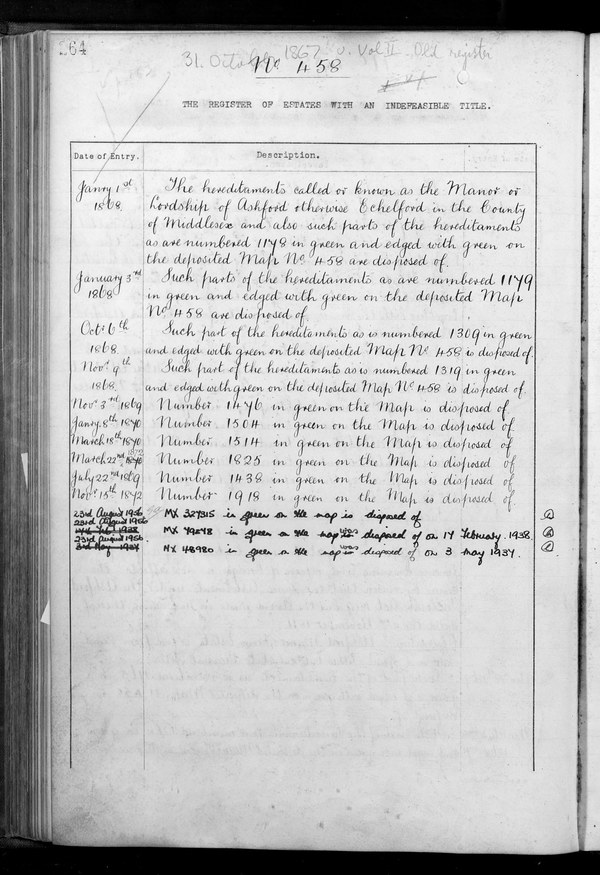 264
31. October 1867 v. Vol II Old register
No 458
THE REGISTER OF ESTATES WITH AN INDEFEASIBLE TITLE.
Date of Entry. Description.
Janry 1st 1868. The hereditaments called or known as the Manor or
Lordship of Ashford otherwise Echelford in the County
of Middlesex and also such parts of the hereditaments
as are numbered 1178 in green and edged with green on
the deposited Map No 458 are disposed of.
January 3rd 1868 Such parts of the hereditaments as are numbered 1179
in green and edged with green on the deposited Map
No 458 are disposed of
Octr 6th 1868. Such part of the hereditaments as is numbered 1309 in green
and edged with green on the deposited Map No 458 is disposed of.
Novr 9th 1868. Such part of the hereditaments as is numbered 1319 in green
and edged with green on the deposited Map No 458 is disposed of.
Novr 3rd 1869 Number 1476 in green on the Map is disposed of
Janry 8th 1870 Number 1504 in green on the Map is disposed of
March 18th 1870 Number 1514 in green on the Map is disposed of
March 22nd 1872 Number 1825 in green on the Map is disposed of
July 22nd 1869 Number 1438 in green on the Map is disposed of
Novr 15th 1872 Number 1918 in green on the Map is disposed of
23rd August 1956 MX 327315 in green on the map is disposed of
23rd August 1956
14th Feb 1938 MX 79278 in green on the map is was disposed of on 14 February. 1938.
23rd August 1956.
3rd May 1937 MX 48980 in green on the map is was disposed of on 3 may 1937.